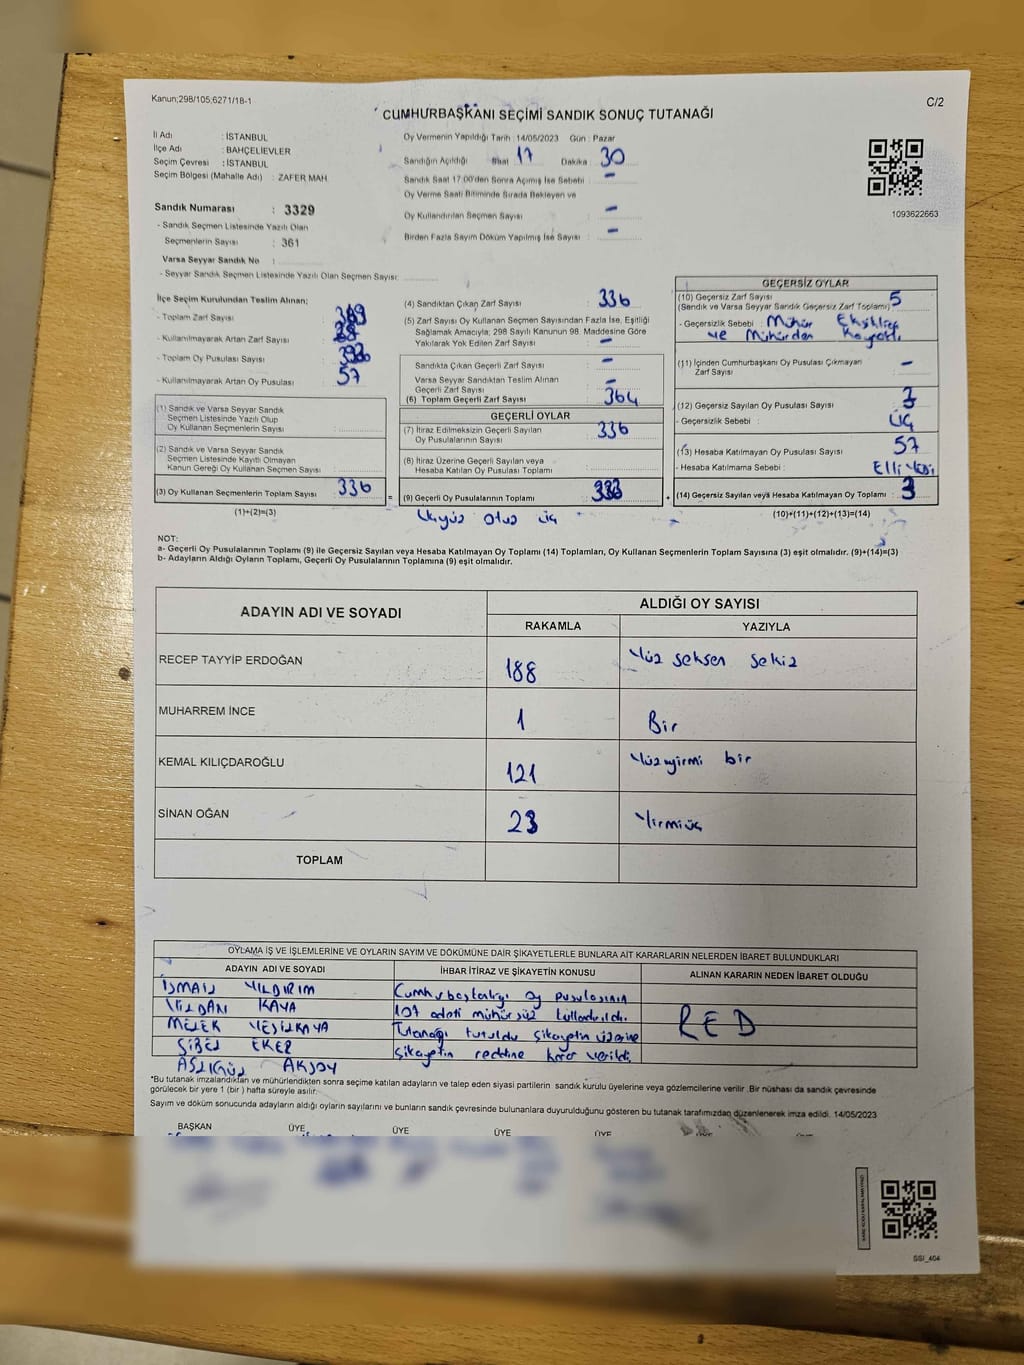 Kanun;298/105;6271/18-1
C/2
CUMHURBAŞKANI SEÇİMİ SANDIK SONUÇ TUTANAĞI
İl Adı : İSTANBUL
İlçe Adı : BAHÇELİEVLER
Seçim Çevresi : İSTANBUL
Seçim Bölgesi (Mahalle Adı) : ZAFER MAH.
Sandık Numarası : 3329
- Sandık Seçmen Listesinde Yazılı Olan
Seçmenlerin Sayısı : 361
Varsa Seyyar Sandık No :
- Seyyar Sandık Seçmen Listesinde Yazılı Olan Seçmen Sayısı:
Oy Vermenin Yapıldığı Tarih : 14/05/2023 Gün : Pazar
Sandığın Açıldığı Saat 17 Dakika 30
Sandık Saat 17.00'den Sonra Açımış İse Sebebi : -
Oy Verme Saati Bitiminde Sırada Bekleyen ve
Oy Kullandırılan Seçmen Sayısı : -
Birden Fazla Sayım Döküm Yapılmış İse Sayısı : -
1093622663
İlçe Seçim Kurulundan Teslim Alınan;
- Toplam Zarf Sayısı :
- Kullanılmayarak Artan Zarf Sayısı :
- Toplam Oy Pusulası Sayısı :
- Kullanılmayarak Artan Oy Pusulası : 57
(1) Sandık ve Varsa Seyyar Sandık
Seçmen Listesinde Yazılı Olup
Oy Kullanan Seçmenlerin Sayısı :
(2) Sandık ve Varsa Seyyar Sandık
Seçmen Listesinde Kayıtlı Olmayan
Kanun Gereği Oy Kullanan Seçmen Sayısı :
(3) Oy Kullanan Seçmenlerin Toplam Sayısı : 336
(1)+(2)=(3)
=
(4) Sandıktan Çıkan Zarf Sayısı : 336
(5) Zarf Sayısı Oy Kullanan Seçmen Sayısından Fazla İse, Eşitliği
Sağlamak Amacıyla; 298 Sayılı Kanunun 98. Maddesine Göre
Yakılarak Yok Edilen Zarf Sayısı : -
Sandıkta Çıkan Geçerli Zarf Sayısı : -
Varsa Seyyar Sandıktan Teslim Alınan
Geçerli Zarf Sayısı : -
(6) Toplam Geçerli Zarf Sayısı : 364
GEÇERLİ OYLAR
(7) İtiraz Edilmeksizin Geçerli Sayılan
Oy Pusulalarının Sayısı : 336
(8) İtiraz Üzerine Geçerli Sayılan veya
Hesaba Katılan Oy Pusulası Toplamı :
(9) Geçerli Oy Pusulalarının Toplamı : 333
Üçyüz otuz üç
+
GEÇERSİZ OYLAR
(10) Geçersiz Zarf Sayısı : 5
(Sandık ve Varsa Seyyar Sandık Geçersiz Zarf Toplamı)
- Geçersizlik Sebebi : Mühür
ve Mühürden
(11) İçinden Cumhurbaşkanı Oy Pusulası Çıkmayan
Zarf Sayısı : -
(12) Geçersiz Sayılan Oy Pusulası Sayısı : 3
- Geçersizlik Sebebi : Üç
(13) Hesaba Katılmayan Oy Pusulası Sayısı : 57
- Hesaba Katılmama Sebebi : Elli Yedi
(14) Geçersiz Sayılan veya Hesaba Katılmayan Oy Toplamı : 3
(10)+(11)+(12)+(13)=(14)
NOT:
a- Geçerli Oy Pusulalarının Toplamı (9) ile Geçersiz Sayılan veya Hesaba Katılmayan Oy Toplamı (14) Toplamları, Oy Kullanan Seçmenlerin Toplam Sayısına (3) eşit olmalıdır. (9)+(14)=(3)
b- Adayların Aldığı Oyların Toplamı, Geçerli Oy Pusulalarının Toplamına (9) eşit olmalıdır.
ADAYIN ADI VE SOYADI ALDIĞI OY SAYISI
RAKAMLA YAZIYLA
RECEP TAYYİP ERDOĞAN 188 Yüz seksen sekiz
MUHARREM İNCE 1 Bir
KEMAL KILIÇDAROĞLU 121 Yüzyirmi bir
SİNAN OĞAN 23 Yirmiüç
TOPLAM
OYLAMA İŞ VE İŞLEMLERİNE VE OYLARIN SAYIM VE DÖKÜMÜNE DAİR ŞİKAYETLERLE BUNLARA AİT KARARLARIN NELERDEN İBARET BULUNDUKLARI
ADAYIN ADI VE SOYADI İHBAR İTİRAZ VE ŞİKAYETİN KONUSU ALINAN KARARIN NEDEN İBARET OLDUĞU
İSMAİL YILDIRIM Cumhurbaşkanlığı oy pusulasının
VİLDAN KAYA 107 adeti mühürsüz kullandırıldı.
MELEK YEŞİLKAYA Tutanağı tutuldu şikayetin üzerine RED
SİBEL EKER şikayetin reddine karar verildi.
ASLIGÜL AKSOY
*Bu tutanak imzalandıktan ve mühürlendikten sonra seçime katılan adayların ve talep eden siyasi partilerin sandık kurulu üyelerine veya gözlemcilerine verilir .Bir nüshası da sandık çevresinde
görülecek bir yere 1 (bir ) hafta süreyle asılır.
Sayım ve döküm sonucunda adayların aldığı oyların sayılarını ve bunların sandık çevresinde bulunanlara duyurulduğunu gösteren bu tutanak tarafımızdan düzenlenerek imza edildi. 14/05/2023
BAŞKAN ÜYE ÜYE ÜYE ÜYE ÜYE
SSI_404